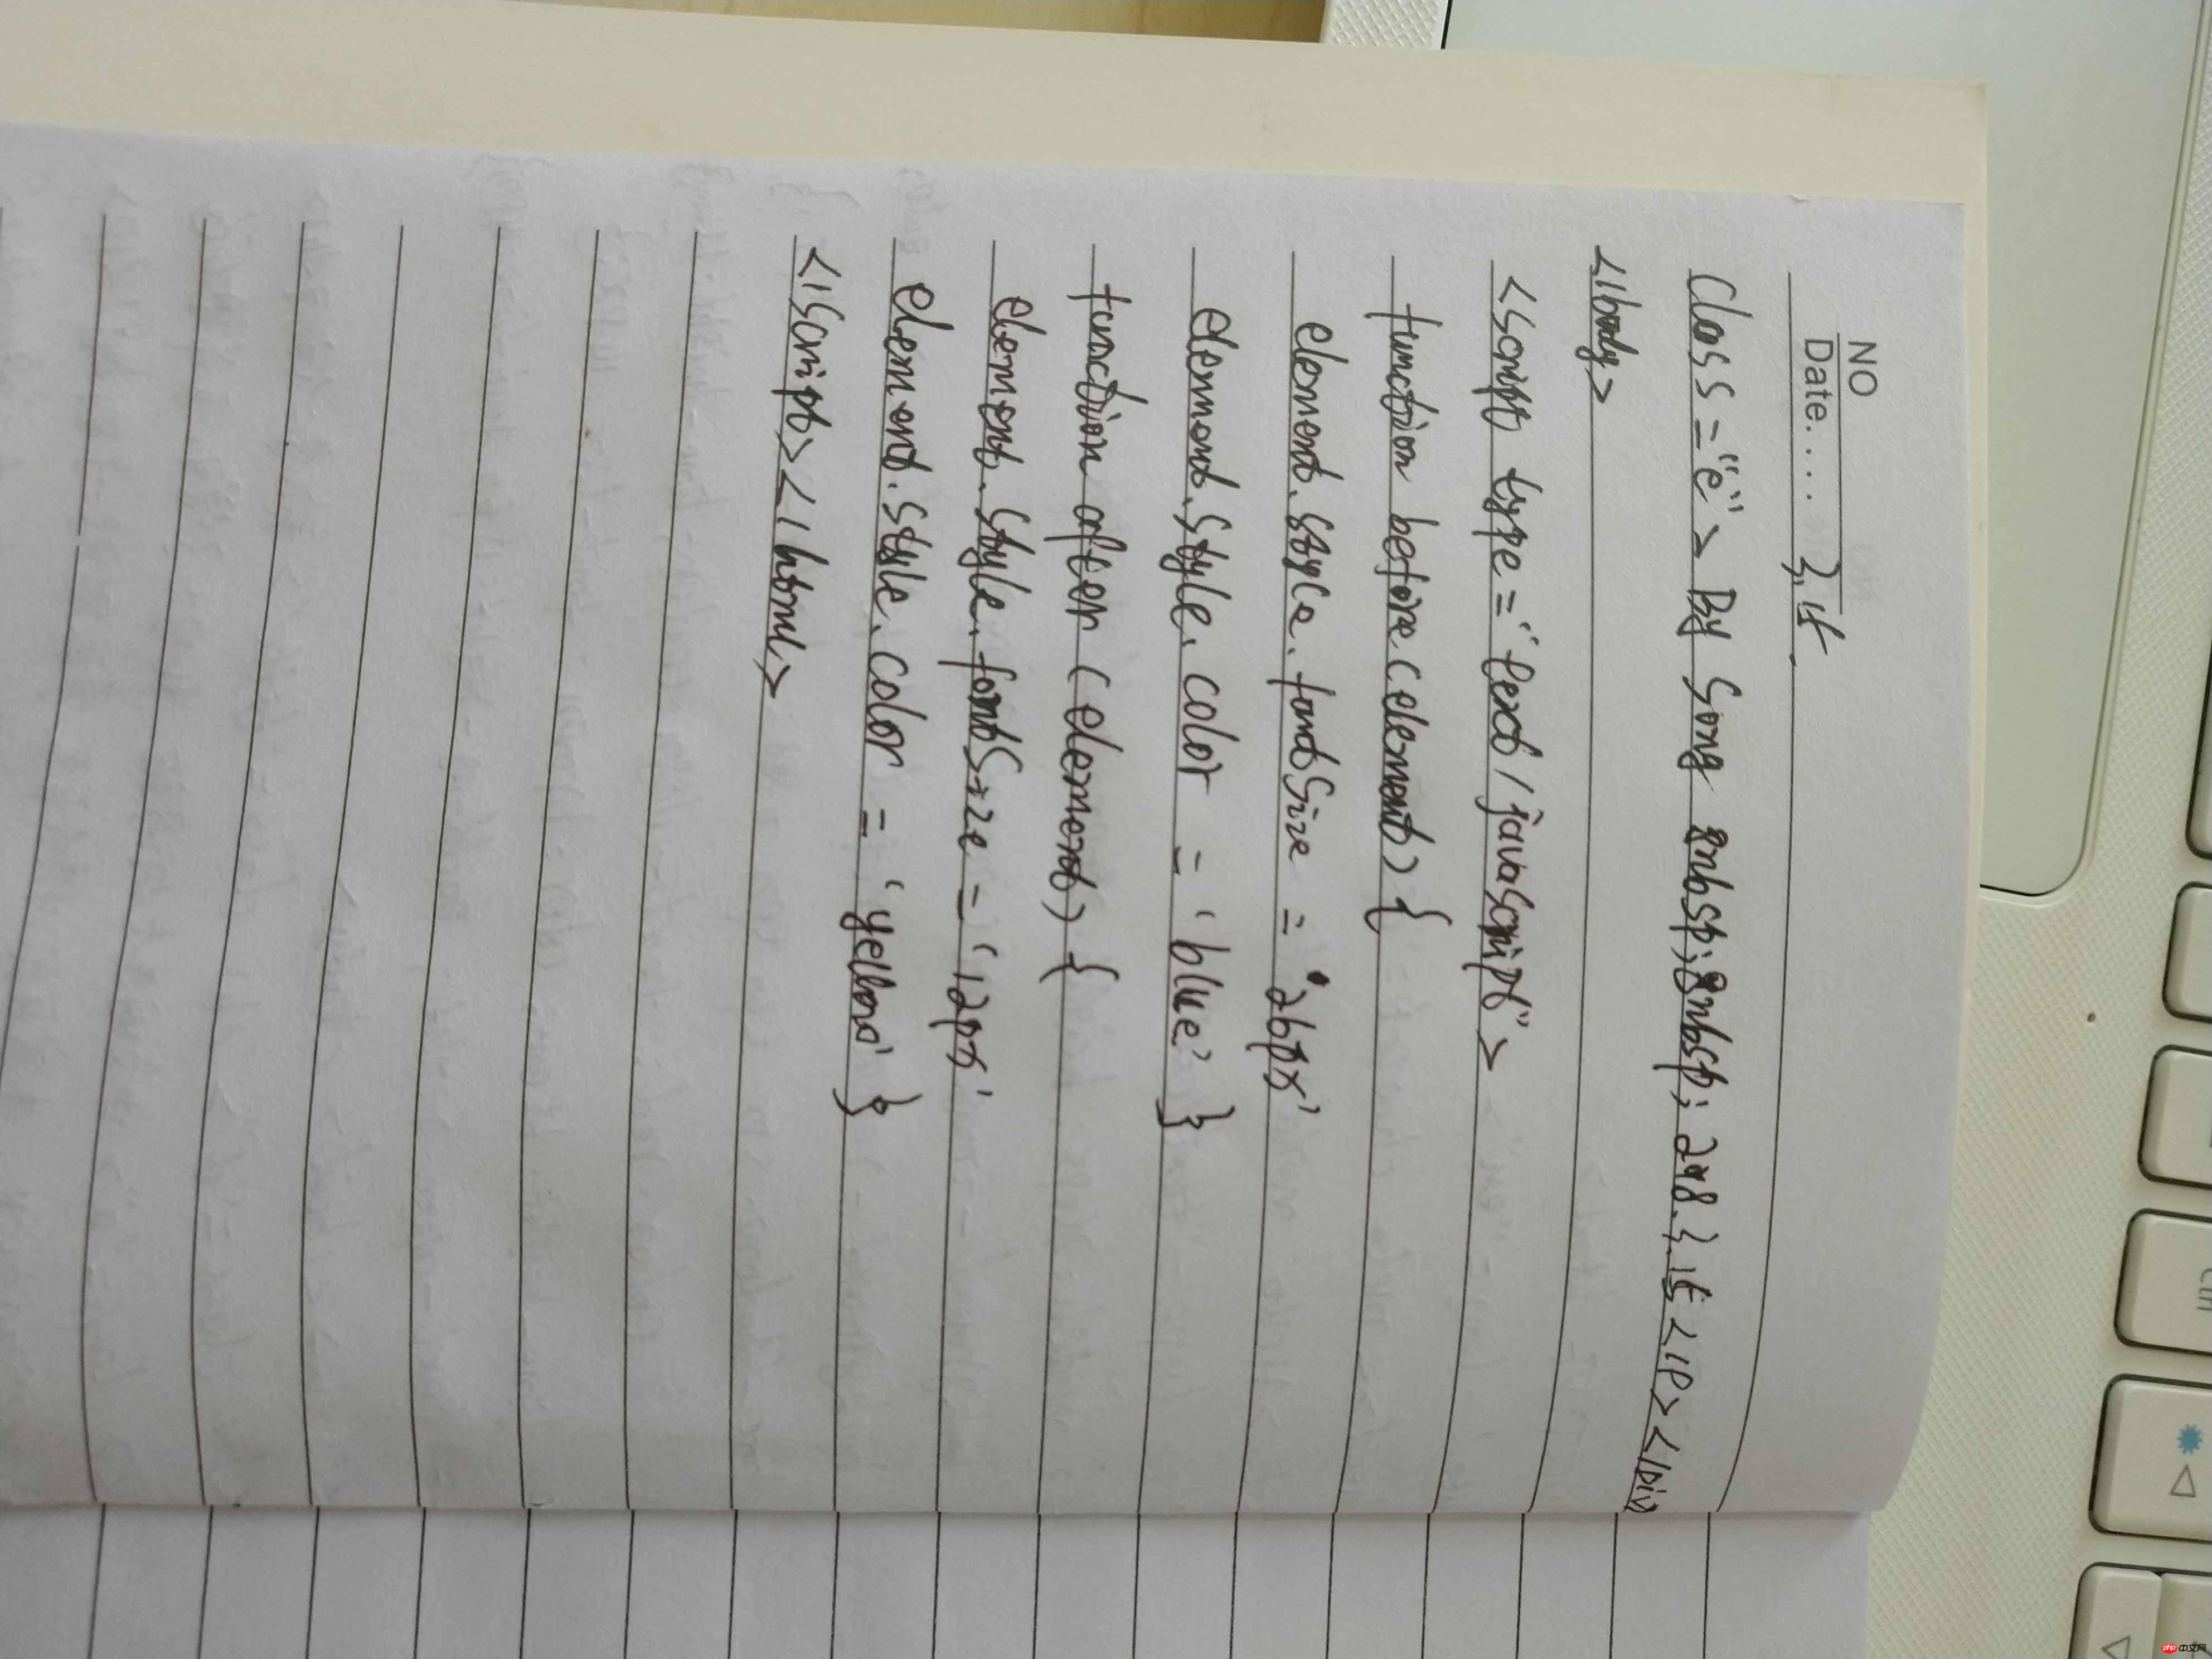 NO
Date.... 3.15.
Class="e"> By Song &nbsp;&nbsp; 2018.3.15</P></Div>
</body>
<script type="text/javascript">
function before(element){
element.style.fontSize = '26px'
element.style.color = 'blue'}
function after(element){
element.style.fontSize = '12px'
element.style.color = 'yellow'}
</script></html>
php 中文网